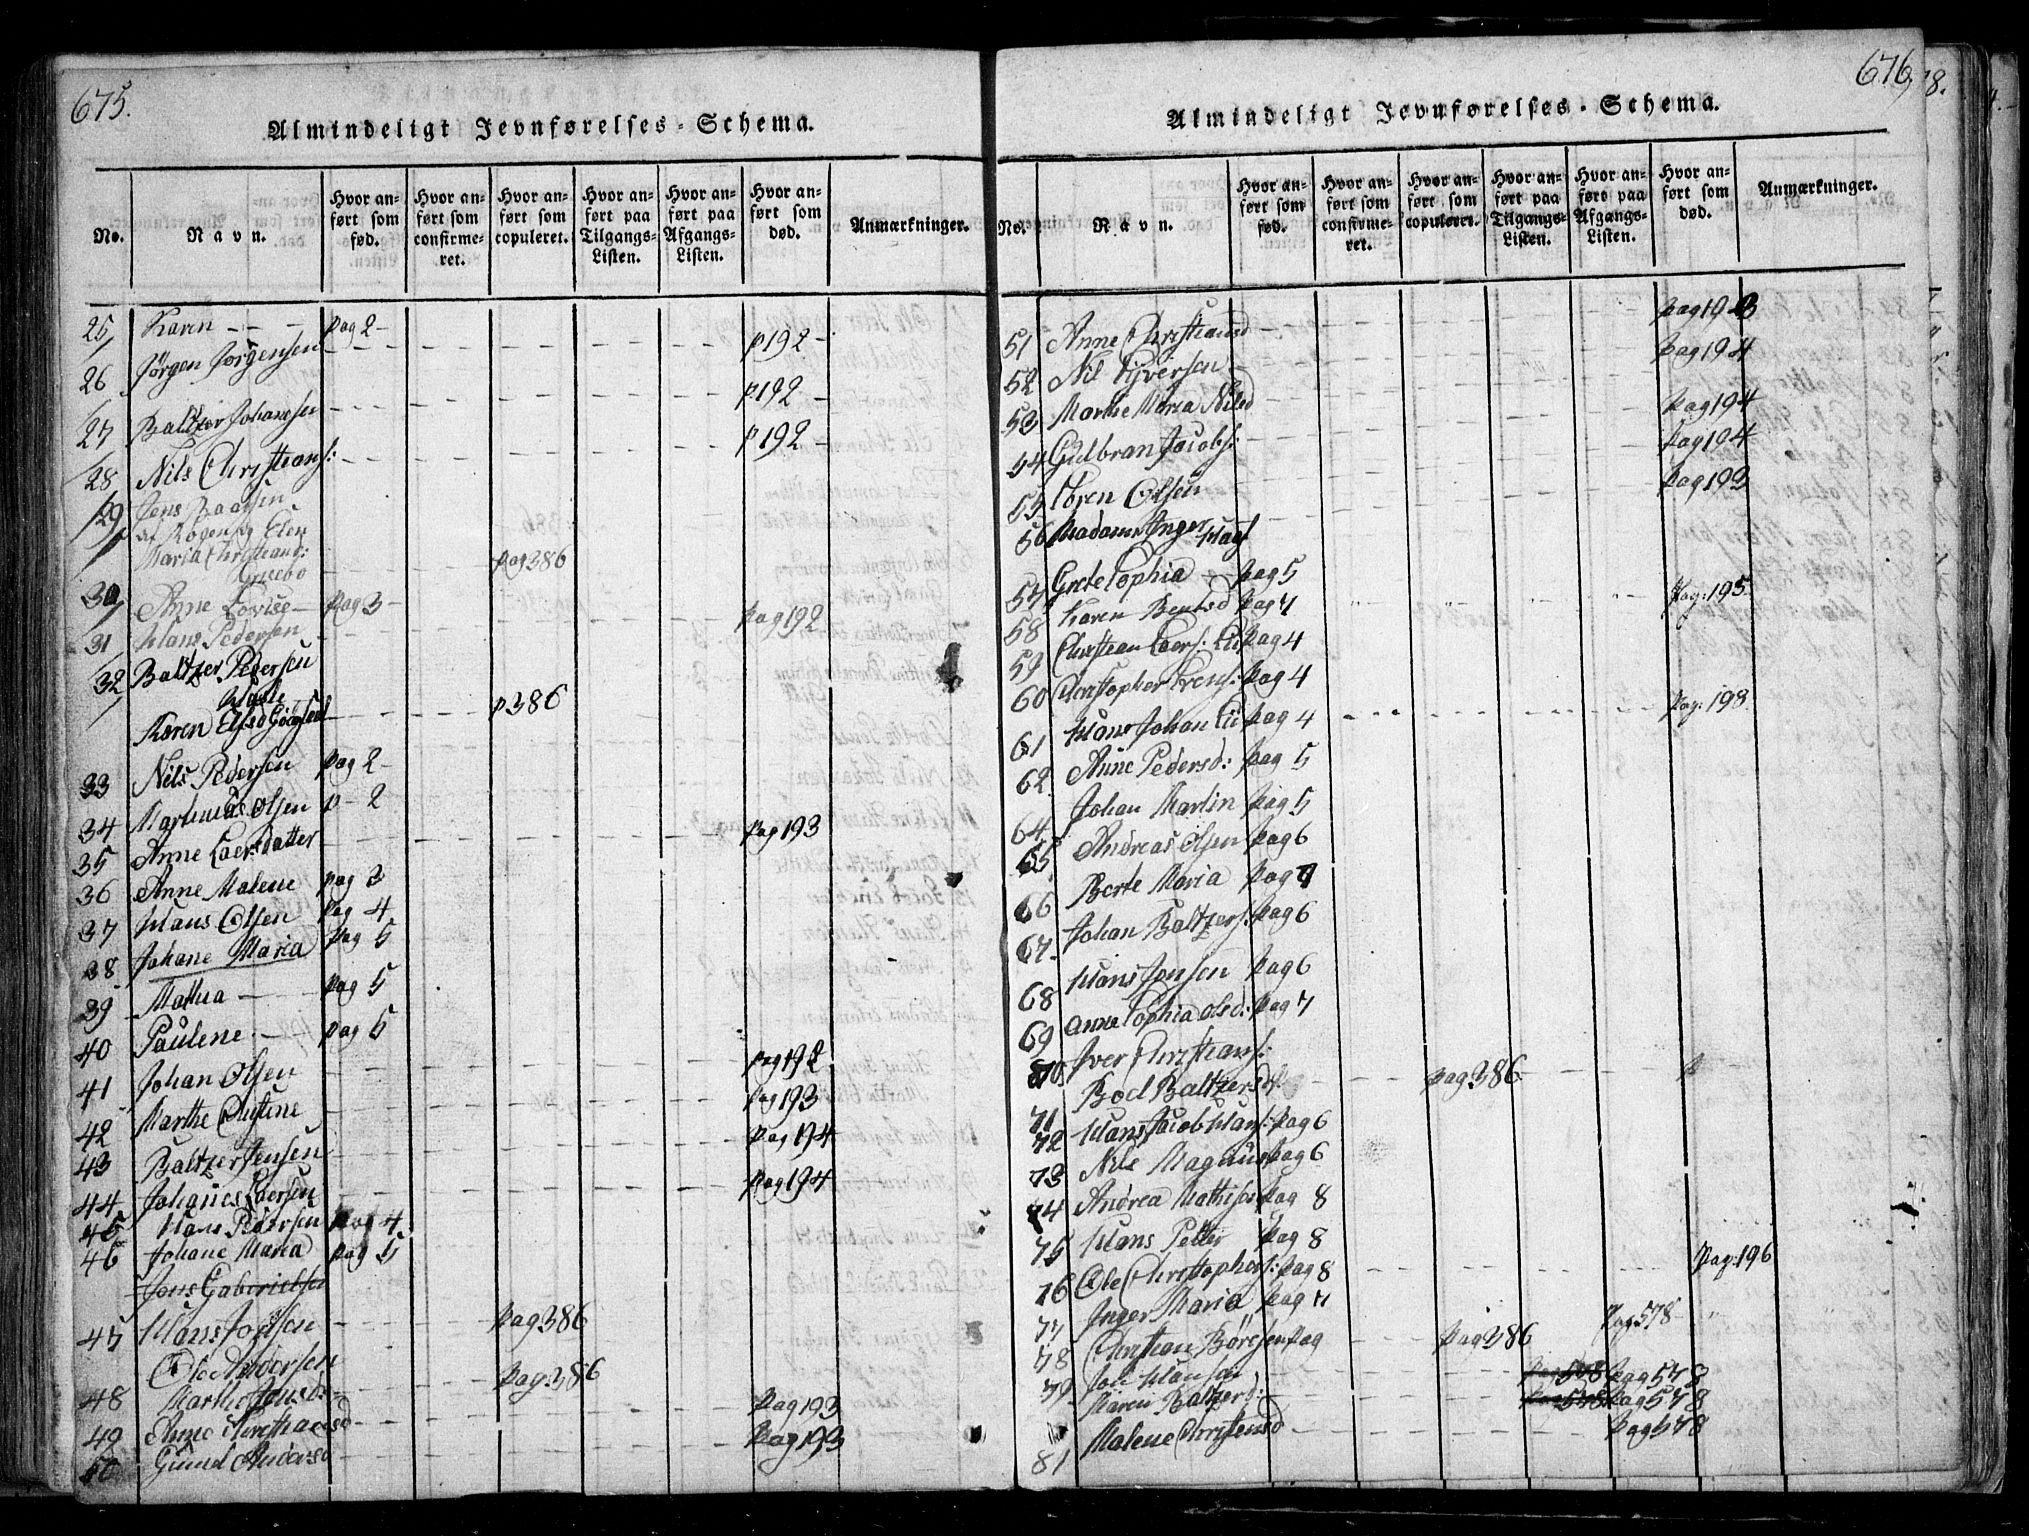 675.
Almindeligt Jevnførelses-Schema.
No.
Navn.
Hvor an-
ført som
fød.
Hvor an-
ført som
confirme-
ret.
Hvor an-
ført som
copuleret.
Hvor an-
ført paa
Tilgangs-
Listen.
Hvor an-
ført paa
Afgangs-
Listen.
Hvor an-
ført som
død.
Anmærkninger.
25 Karen pag 2
26 Jørgen Jørgensen p 192
27 Baltzer Johannsen p 192
28 Nils Christians: p 192
29 Jens
Maria Christians: pag 386
30 Anne Lovise pag 3
31 Hans Pedersen pag 192
32 Baltzer Pedersen
Karen p 386
33 Nils Pedersen pag 2
34 Olsen p 2
35 Anne Laersdatter pag 193
36 Anne Malene pag 3
37 Hans Olsen pag 4
38 Johane Maria pag 5
39 Mathea pag 5
40 Paulene pag 5
41 Johan Olsen pag 192
42 Marthe pag 193
43 Baltzer Jensen pag 194
44 Johanes Laersen pag 194
45 Hans Pedersen pag 4
46 Johane Maria pag 5
Jens Gabrielsen
47 Hans pag 386
Ole Andersen
48 Marthe Jensd: pag. 386
49 Anne Christiansd pag 193
50 Gund Andersd pag 193
676
Almindeligt Jevnførelses-Schema.
No.
Navn.
Hvor an-
ført som
fød.
Hvor an-
ført som
confirme-
ret.
Hvor an-
ført som
copuleret.
Hvor an-
ført paa
Tilgangs-
Listen.
Hvor an-
ført paa
Afgangs-
Listen.
Hvor an-
ført som
død.
Anmærkninger.
51 Anne Christiansd pag 193
52 Nil Syversen pag 194
53 Marthe Maria Nilsd pag 194
54 Gulbran Jacobs: pag 194
55 Søren Olsen pag 193
56 Madame Inger
57 Grete Sophia pag 5
58 Karen Bentsd pag 4 Pag: 195
59 Christean Laers: pag 4
60 Christopher pag 4
61 Hans Johan pag 4 Pag: 198
62 Anne Pedersd: pag 5
64 Johan Martin pag 5
65 Andreas Olsen pag 6
66 Berte Maria pag 7
67 Johan Baltzers: pag 6
68 Hans Jensen pag 6
69 Anne Sophia Olsd: pag 7
70 Iver Christians:
71 Boel Baltzersd. pag 386
72 Hans Jacob Hans: pag 6
73 Nils Magnus pag 6
74 Andrea Mathisd pag 8
75 Hans Petter pag 8
76 Ole Christophers: pag 8 Pag: 196
77 Inger Maria pag 7
78 Christian Børgesen pag pag 386 Pag 578
79 Jon Hansen pag 578
Maren Baltzersd: pag 578
81 Malene Christensd pag 578